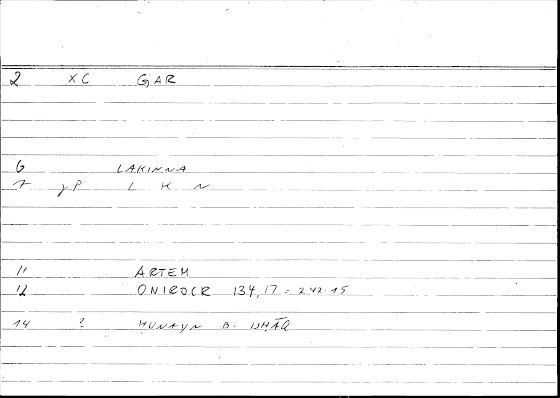 2 XC GAR
6 LAKINNA
7 γP L K N
11 ARTEM
12 ONIROCR 134,17 = 242.15
14 ? HUNAYN B. ISHĀQ